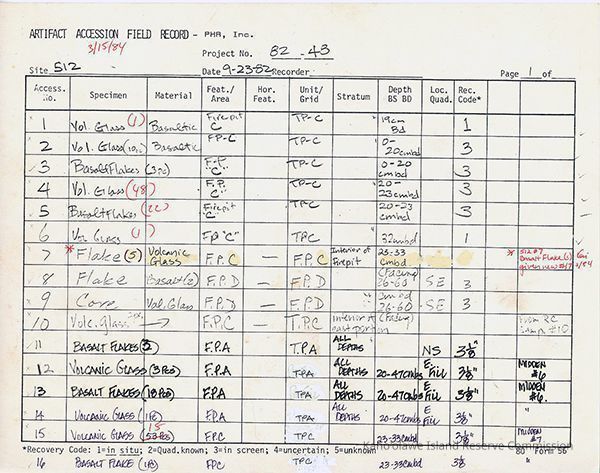 ARTIFACT ACCESSION FIELD RECORD - PHR, Inc.
3/15/84
Project No. 82 - 43
Site 512 Date 9-23-82 Recorder Page 1 of
Access. no. Specimen Material Feat./ Area Hor. Feat. Unit/ Grid Stratum Depth BS BD Loc. Quad. Rec. Code*
1 Vol. Glass (1) Basaltic Firepit C TP-C 19cm Bd 1
2 Vol. Glass Basaltic FP-C TP-C 0-20cmbd 3
3 Basalt Flakes (3pc) F.P. "C" TP-C 0-20 cmbd 3
4 Vol. Glass (48) F.P. "C" TP-C 20-23 cmbd 3
5 Basalt Flakes (22) Firepit "C" TPC 20-23 cmbd 3
6 Vol Glass (1) FP "C" TPC 32cmbd 1
7 * Flake (5) Volcanic Glass F.P.C — F.P.C Interior of firepit 23-33 cmbd * 512#7 Basalt Flake(s) given new #17
8 Flake Basalt (2) F.P.D — F.P.D (facing) 26-60 SE 3
9 Core Vol. Glass F.P.D — F.P.D cmbd 26-60 SE 3
10 Volc. Glass → F.P.C — T.P.C Interior of east portion (facing) #10
11 BASALT FLAKES (2) F.P.A T.P.A ALL DEPTHS NS 3⅛"
12 VOLCANIC GLASS (3 PCS) F.P.A TPA ALL DEPTHS 20-47cmbs E. Fill 3⅛" MIDDEN #6
13 BASALT FLAKES (18 PCS) F.P.A TPA ALL DEPTHS 20-47cmbs E Fill 3⅛" MIDDEN #6.
14 VOLCANIC GLASS (1 PC) F.P.A TPA ALL DEPTHS 20-47cmbs E Fill 3⅛" "
15 VOLCANIC GLASS 15 FPC TPC 23-33cmbd 3⅛" MIDDEN #7
Kaho'olawe Island Reserve Commission
*Recovery Code: 1=in situ; 2=Quad.known; 3=in screen; 4=uncertain; 5=unknown 80 Form 56
16 BASALT FLAKE FPC TPC 23-33cmbd 3⅛" "